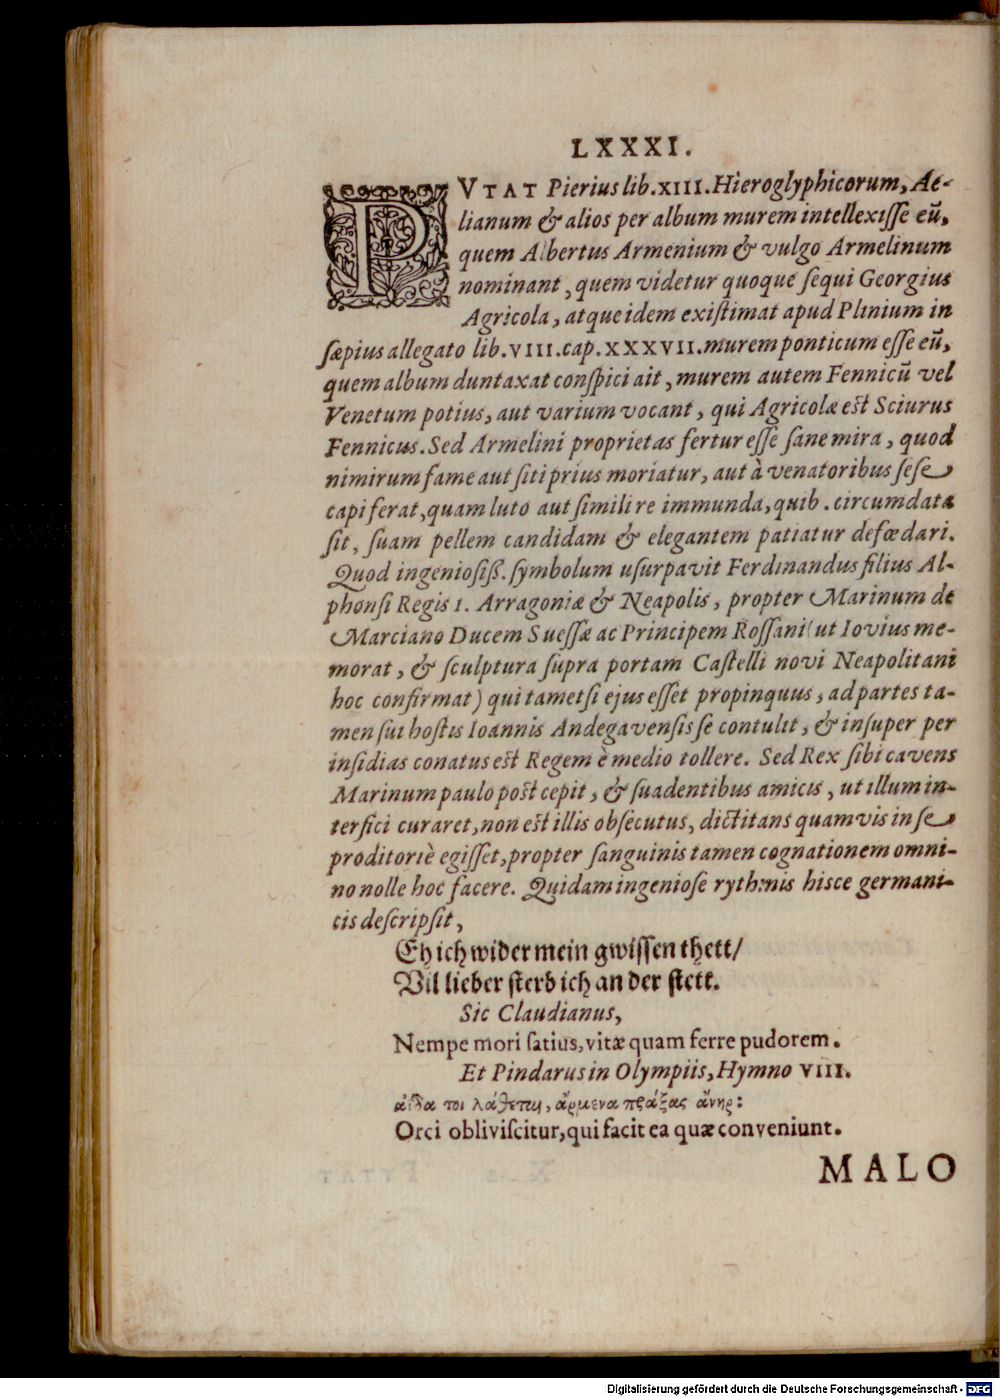 LXXXI.
PVTAT Pierius lib. XIII. Hieroglyphicorum, Ae-
lianum & alios per album murem intellexisse eũ,
quem Albertus Armenium & vulgo Armelinum
nominant, quem videtur quoque sequi Georgius
Agricola, atque idem existimat apud Plinium in
sæpius allegato lib. VIII. cap. XXXVII. murem ponticum esse eũ,
quem album duntaxat conspici ait, murem autem Fennicũ vel
Venetum potius, aut varium vocant, qui Agricolæ est Sciurus
Fennicus. Sed Armelini proprietas fertur esse sane mira, quod
nimirum fame aut siti prius moriatur, aut à venatoribus sese
capi ferat, quam luto aut simili re immunda, quib. circumdata
sit, suam pellem candidam & elegantem patiatur defœdari.
Quod ingeniosiß. symbolum usurpavit Ferdinandus filius Al-
phonsi Regis 1. Arragoniæ & Neapolis, propter Marinum de
Marciano Ducem Suessæ ac Principem Rossani (ut Iovius me-
morat, & sculptura supra portam Castelli novi Neapolitani
hoc confirmat) qui tametsi ejus esset propinquus, ad partes ta-
men sui hostis Ioannis Andegavensis se contulit, & insuper per
insidias conatus est Regem è medio tollere. Sed Rex sibi cavens
Marinum paulo post cepit, & suadentibus amicis, ut illum in-
terfici curaret, non est illis obsecutus, dictitans quamvis in se
proditoriè egisset, propter sanguinis tamen cognationem omni-
no nolle hoc facere. Quidam ingeniose rythmis hisce germani-
cis descripsit,
Eh ich wider mein gwissen thett/
Vil lieber sterb ich an der stett.
Sic Claudianus,
Nempe mori satius, vitæ quam ferre pudorem.
Et Pindarus in Olympiis, Hymno VIII.
ἀΐδα τοι λάθεται, ἄρμενα πράξας ἄνηρ:
Orci obliviscitur, qui facit ea quæ conveniunt.
MALO
Digitalisierung gefördert durch die Deutsche Forschungsgemeinschaft - DFG